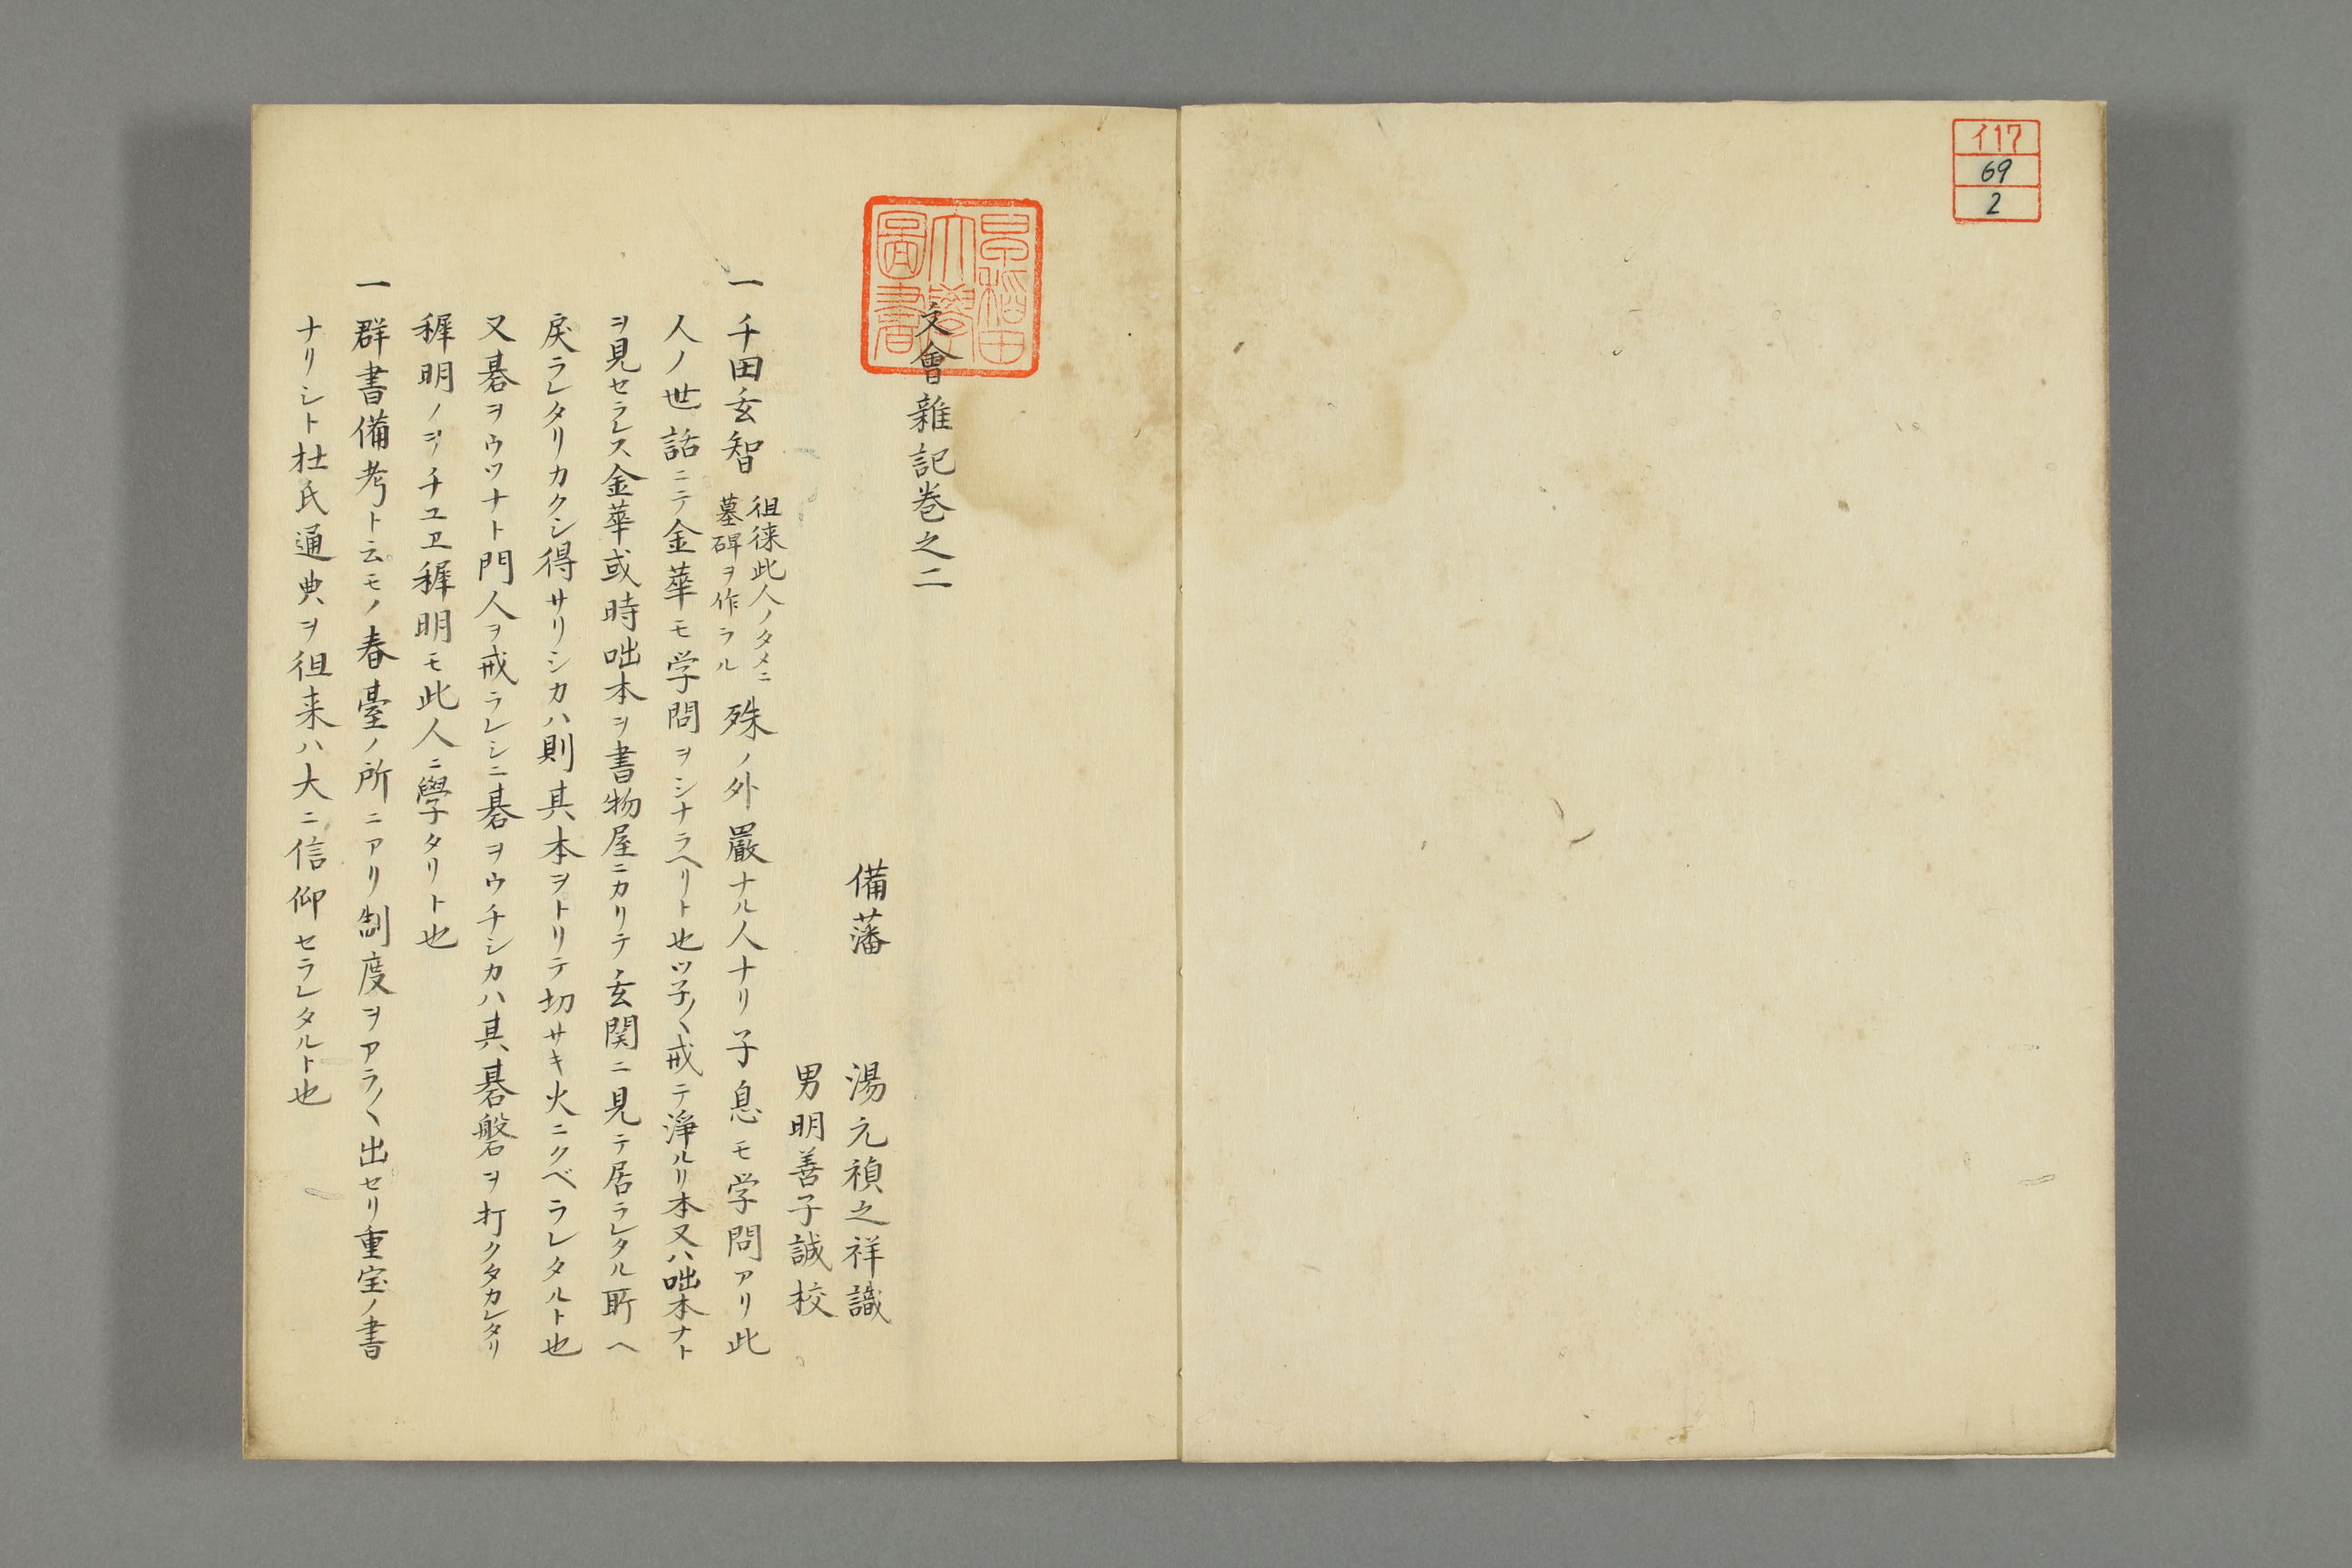 イ17
69
2
早稲田大學圖書
文會雜記巻之二
備藩 湯元禎之祥識
男明善子誠校
一千田玄智
徂徠此人ノタメニ
墓碑ヲ作ラル
殊ノ外嚴ナル人ナリ子息モ学問アリ此
人ノ世話ニテ金華モ学問ヲシナラヘリト也ツ子〱戒テ淨ルリ本又ハ咄本ナト
ヲ見セラレス金華或時咄本ヲ書物屋ニカリテ玄関ニ見テ居ラレタル所ヘ
戻ラレタリカクシ得サリシカハ則其本ヲトリテ切サキ火ニクベラレタルト也
又碁ヲウツナト門人ヲ戒ラレシニ碁ヲウチシカハ其碁盤ヲ打クタカレタリ
穉明ノヲチユヱ穉明モ此人ニ學タリト也
一群書備考ト云モノ春臺ノ所ニアリ制度ヲアラ〱出セリ重宝ノ書
ナリシト杜氏通典ヲ徂来ハ大ニ信仰セラレタルト也